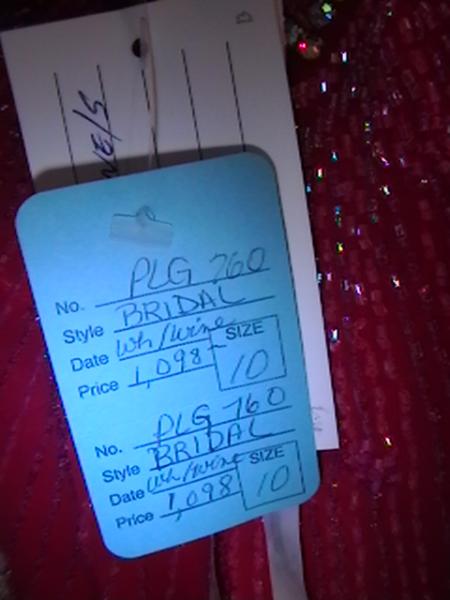 NE/S
No. PLG 760
Style BRIDAL
Date Wh/wine
SIZE
Price 1,098-
10
No. PLG 760
Style BRIDAL
Date Wh/wine
SIZE
Price 1,098
10